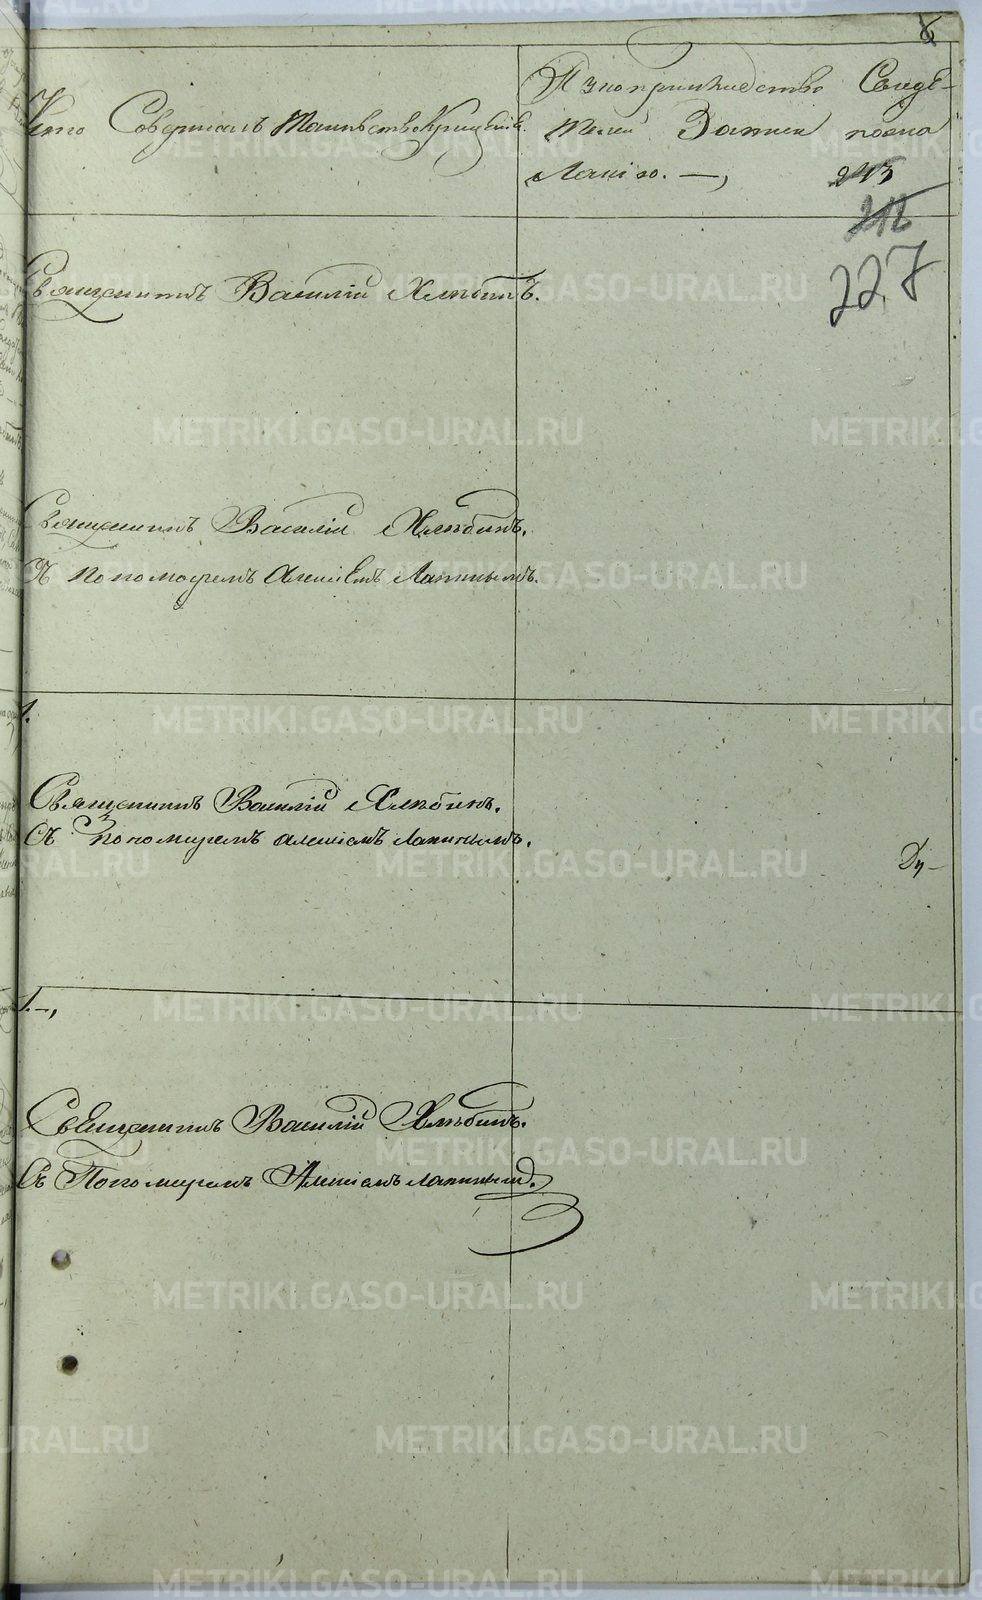 8
Кто Совершалъ Таинство Крещенія.
Рукоприкладство Свидѣ-
телей Записи по жела
Лапію. —,
243
216
227
Священникъ Василій Хлѣбинъ.
Священникъ Василій Хлѣбинъ.
Съ пономаремъ Алексіемъ Лапинымъ.
1.
Священникъ Василій Хлѣбинъ.
Съ пономаремъ Алексіемъ Лапинымъ.
Ду-
1.—,
Священникъ Василій Хлѣбинъ.
Съ Пономаремъ Алексіемъ Лапинымъ.
METRIKI.GASO-URAL.RU